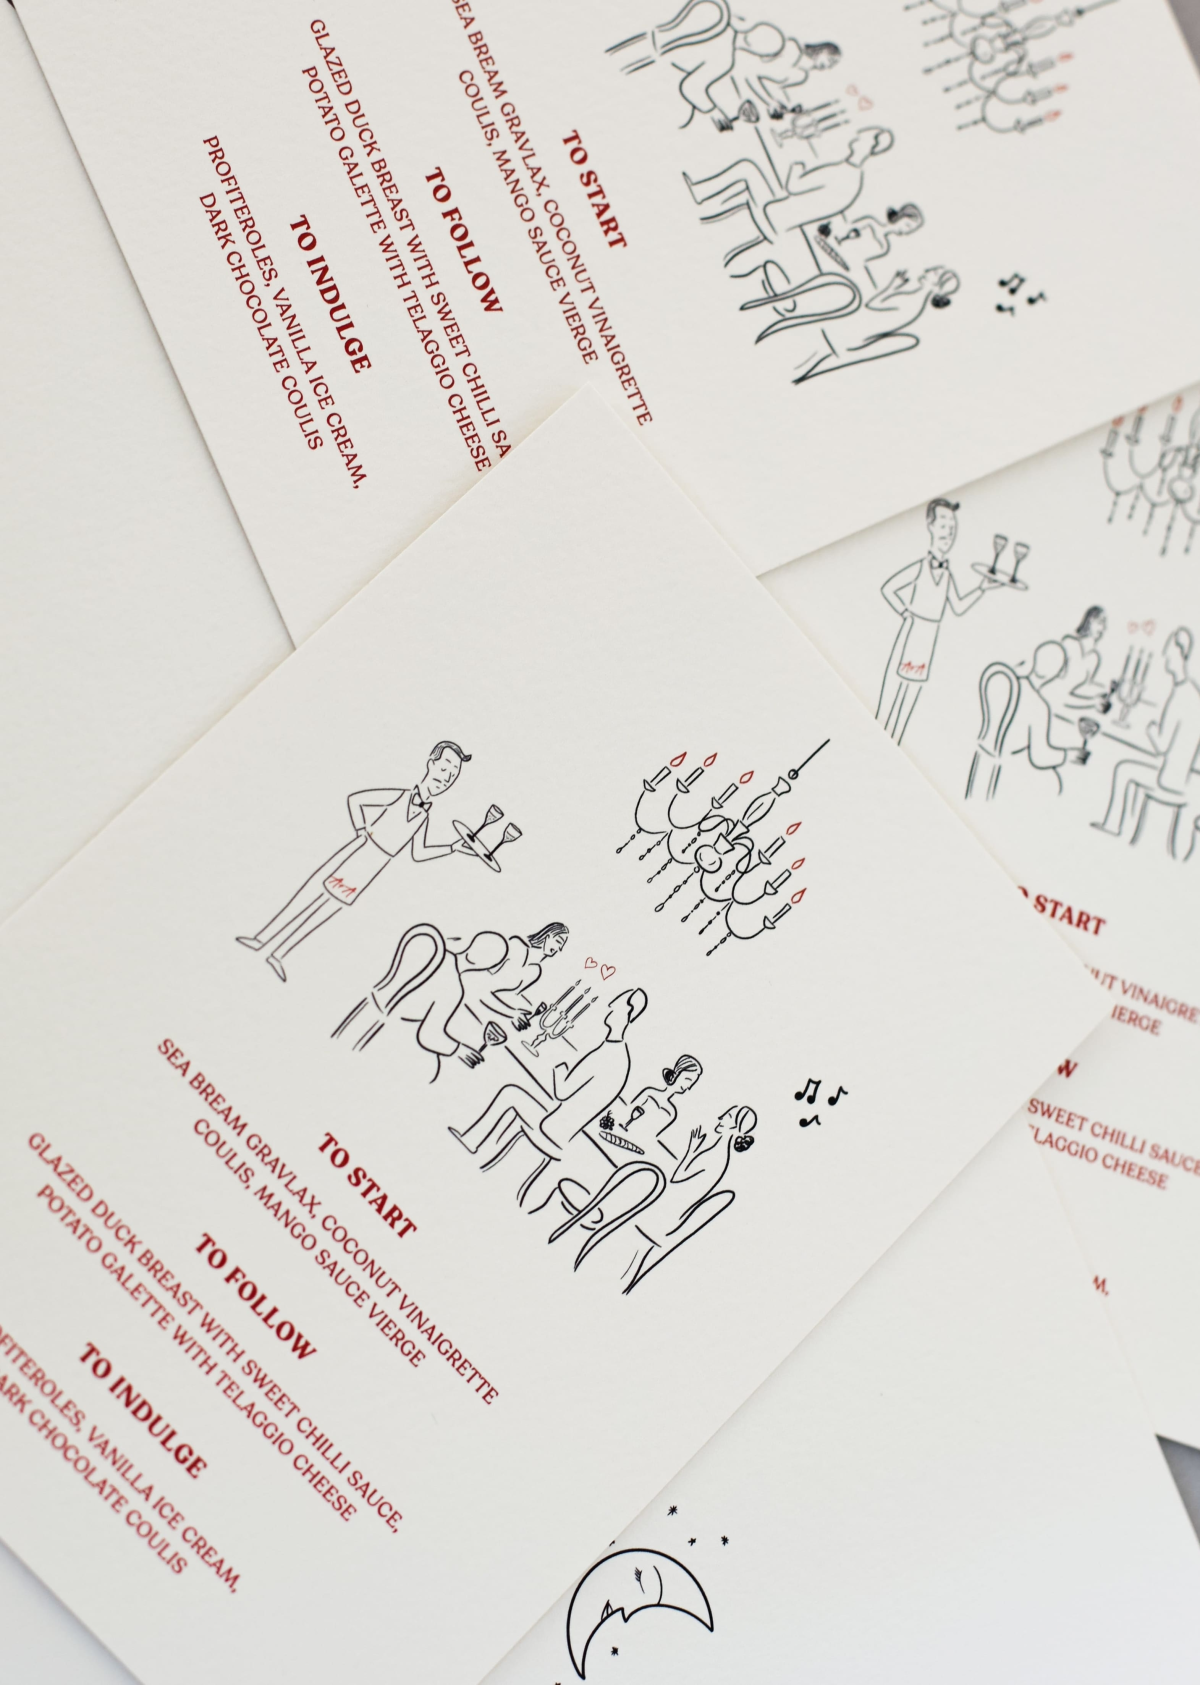 TO START
SEA BREAM GRAVLAX, COCONUT VINAIGRETTE
COULIS, MANGO SAUCE VIERGE
TO FOLLOW
GLAZED DUCK BREAST WITH SWEET CHILLI SA
POTATO GALETTE WITH TELAGGIO CHEESE
TO INDULGE
PROFITEROLES, VANILLA ICE CREAM,
DARK CHOCOLATE COULIS
TO START
SEA BREAM GRAVLAX, COCONUT VINAIGRETTE
COULIS, MANGO SAUCE VIERGE
TO FOLLOW
GLAZED DUCK BREAST WITH SWEET CHILLI SAUCE,
POTATO GALETTE WITH TELAGGIO CHEESE
TO INDULGE
OFITEROLES, VANILLA ICE CREAM,
ARK CHOCOLATE COULIS
START
UT VINAIGRE
IERGE
W
SWEET CHILLI SAUCE
LAGGIO CHEESE
M,